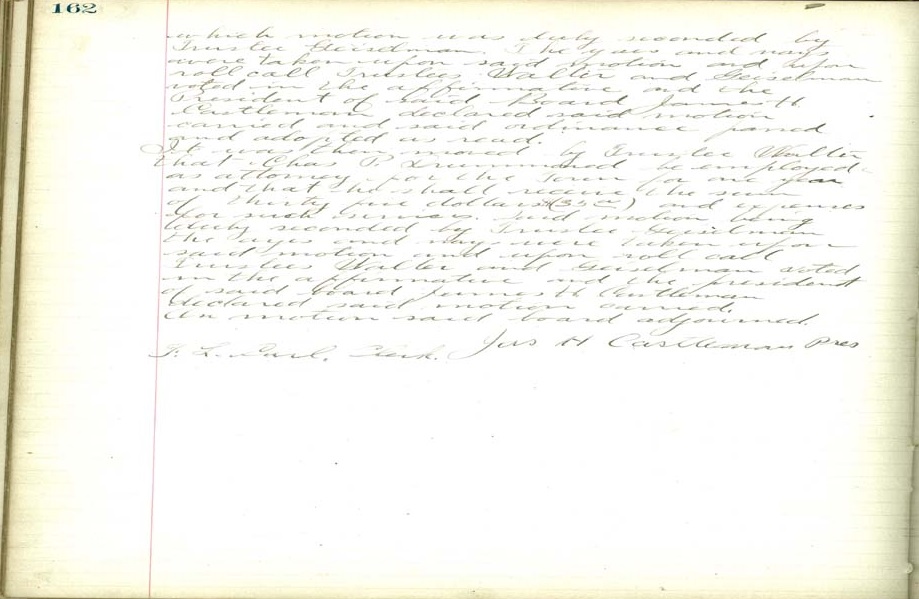 162
which motion was duly seconded by
Trustee Geiselman. The yeas and nays
were taken upon said motion and upon
roll call Trustees Walter and Geiselman
voted in the affirmative and the
President of said Board James H.
Castleman declared said motion
carried and said ordinance passed
and adopted as read.
It was then moved by Trustee Walter
that Chas P Drummond be employed
as attorney for the Town for one year
and that he shall receive the sum
of thirty five dollars (35 00) and expenses
for such services. Said motion being
duly seconded by Trustee Geiselman
the ayes and nays were taken upon
said motion and upon roll call
Trustees Walter and Geiselman voted
in the affirmative and the president
of said board James H Castleman
declared said motion carried.
On motion said board adjourned.
Jas H Castleman Pres
Clerk.